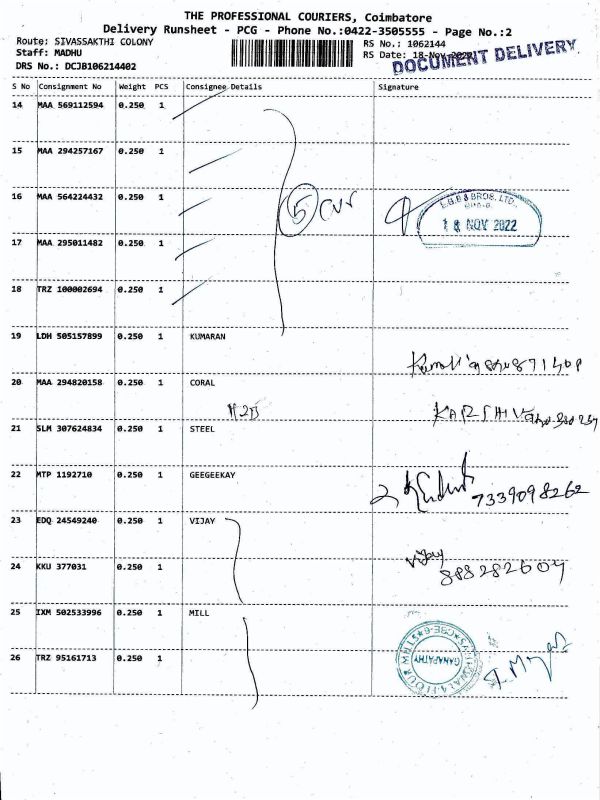 THE PROFESSIONAL COURIERS, Coimbatore
Delivery Runsheet - PCG - Phone No.:0422-3505555 - Page No.:2
Route: SIVASSAKTHI COLONY
Staff: MADHU
DRS No.: DCJB106214402
RS No.: 1062144
RS Date: 18-Nov-2022
DOCUMENT DELIVERY
S No Consignment No Weight PCS Consignee Details Signature
14 MAA 569112594 0.250 1
15 MAA 294257167 0.250 1
16 MAA 564224432 0.250 1 5
18 NOV 2022
17 MAA 295011482 0.250 1
18 TRZ 100002694 0.250 1
19 LDH 505157899 0.250 1 KUMARAN
20 MAA 294820158 0.250 1 CORAL
21 SLM 307624834 0.250 1 STEEL
22 MTP 1192710 0.250 1 GEEGEEKAY
7339098262
23 EDQ 24549240 0.250 1 VIJAY
24 KKU 377031 0.250 1
Vijay
888282604
25 IXM 502533996 0.250 1 MILL
26 TRZ 95161713 0.250 1
GANAPATHY